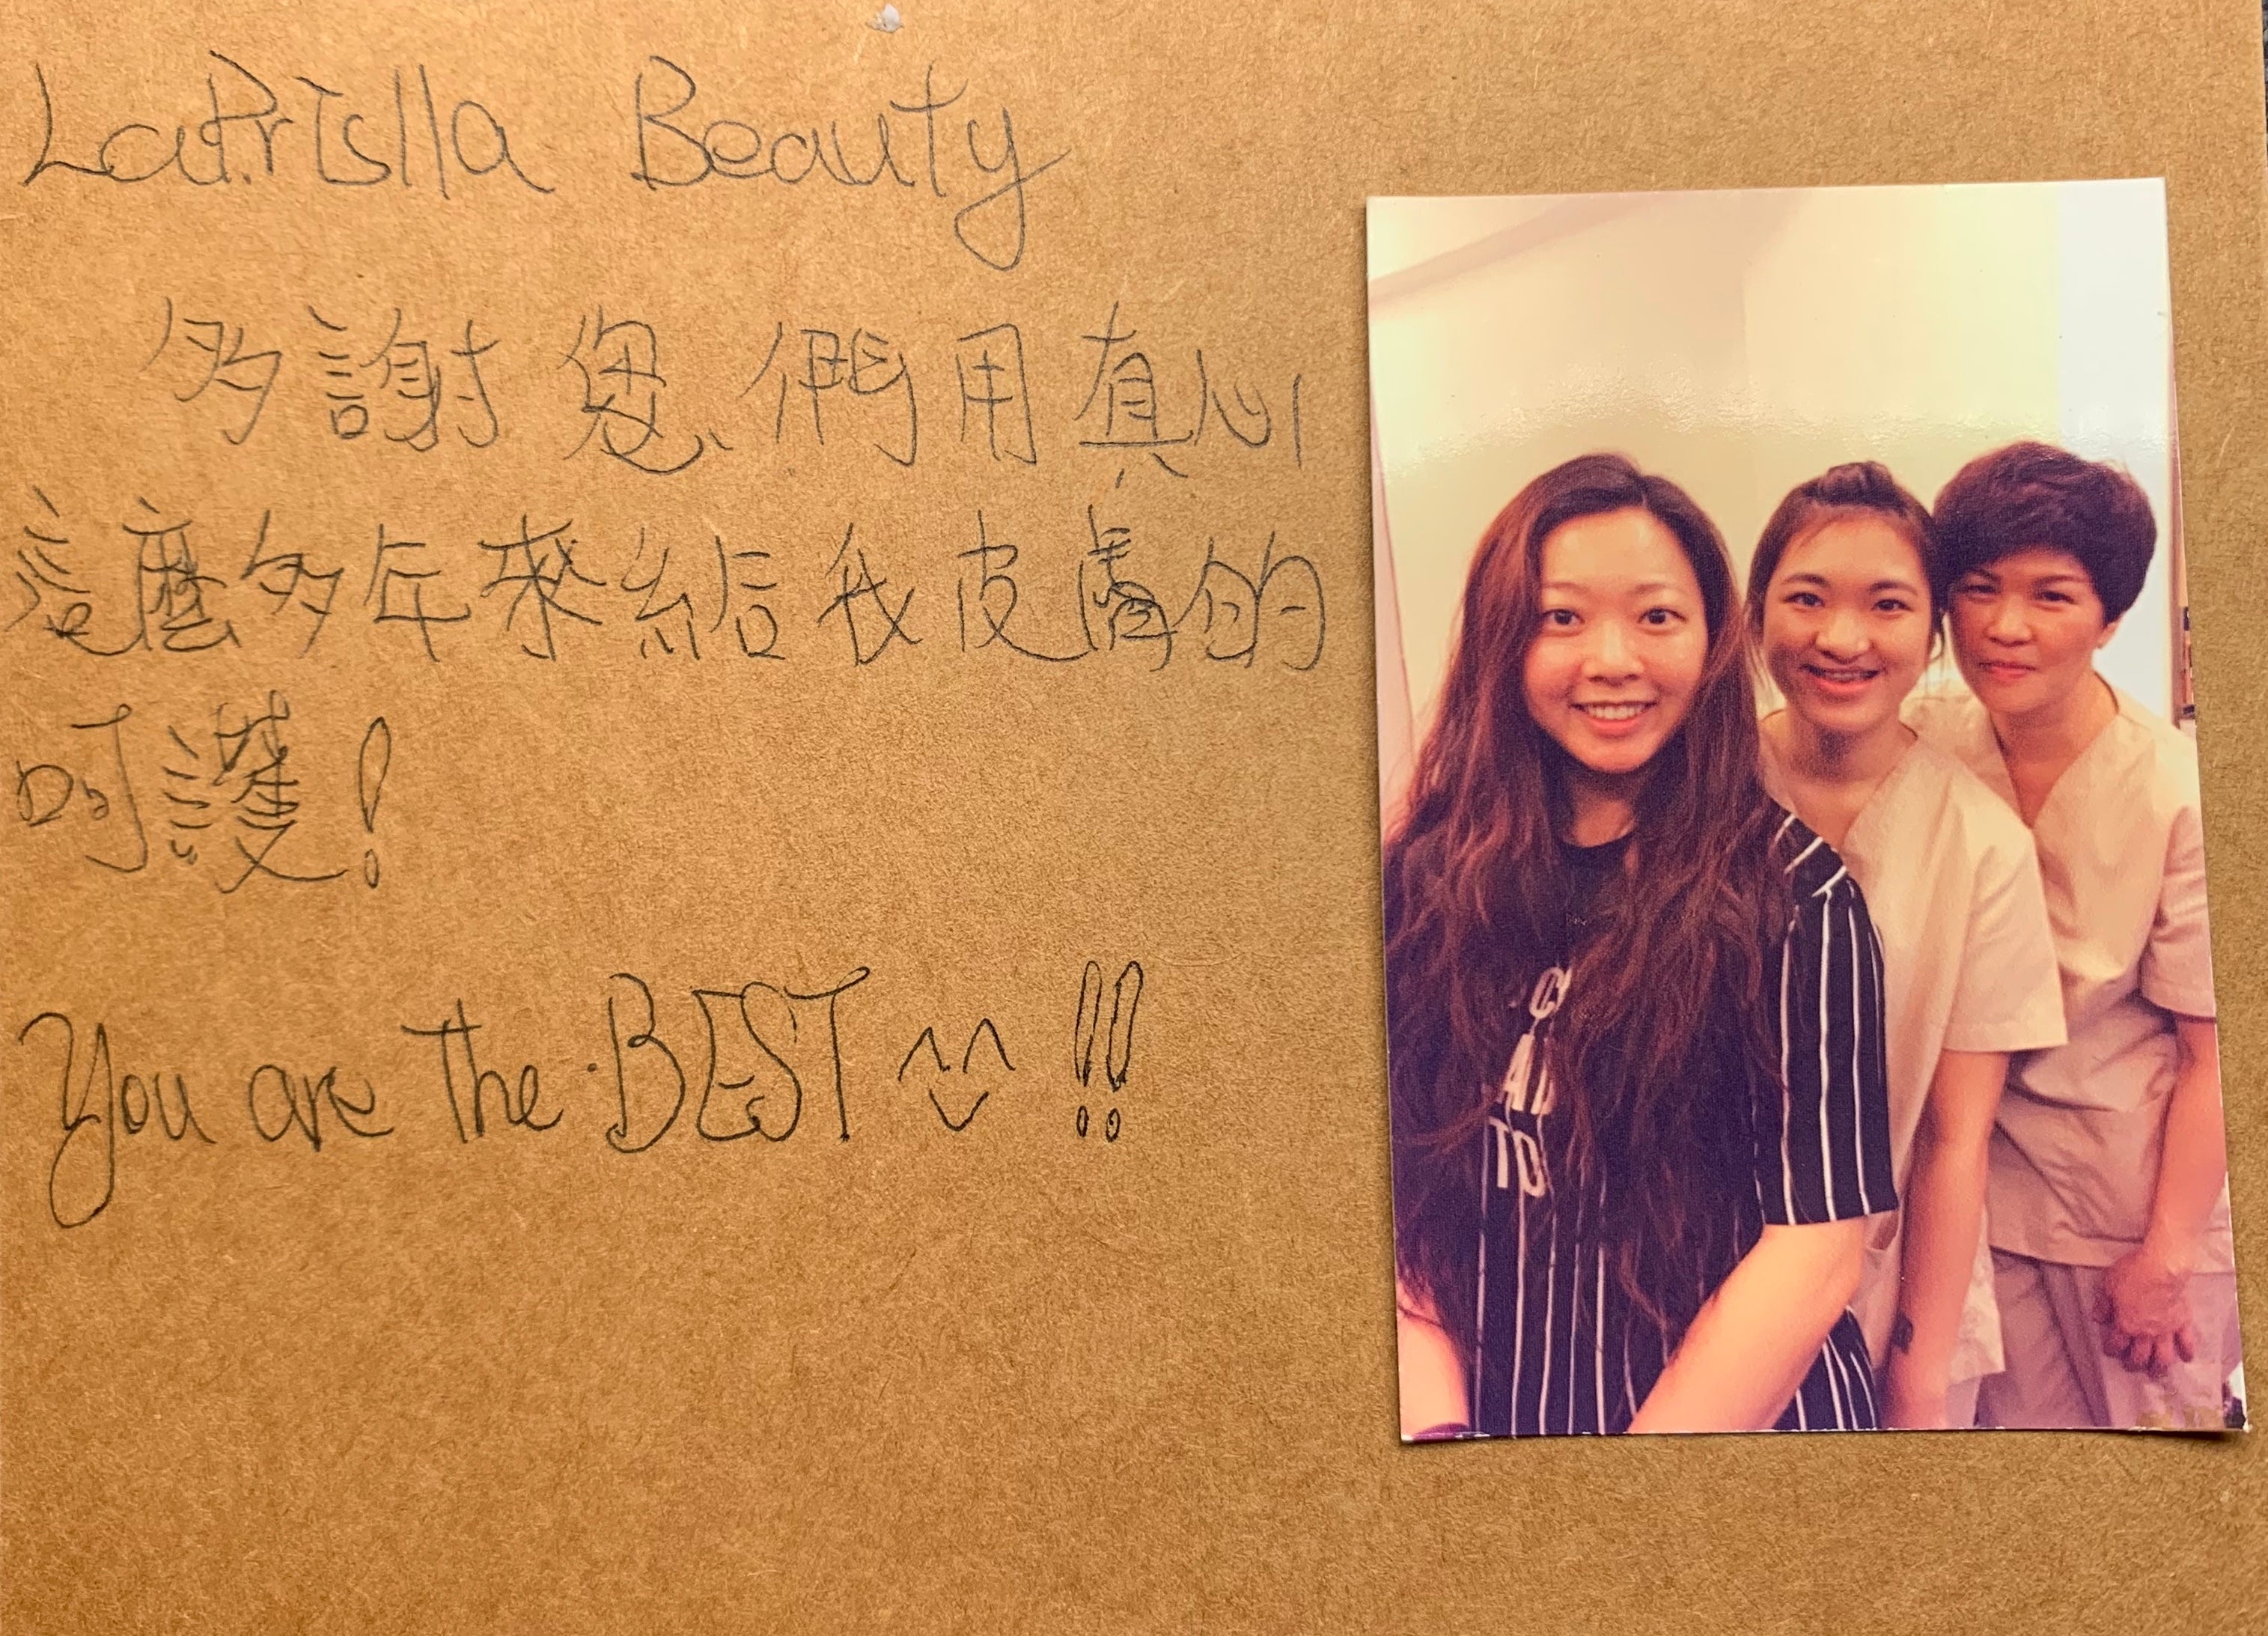 LaPrislla Beauty
多謝您們用真心
這麼多年來給我皮膚的
呵護!
You are the BEST ^^ !!
TO